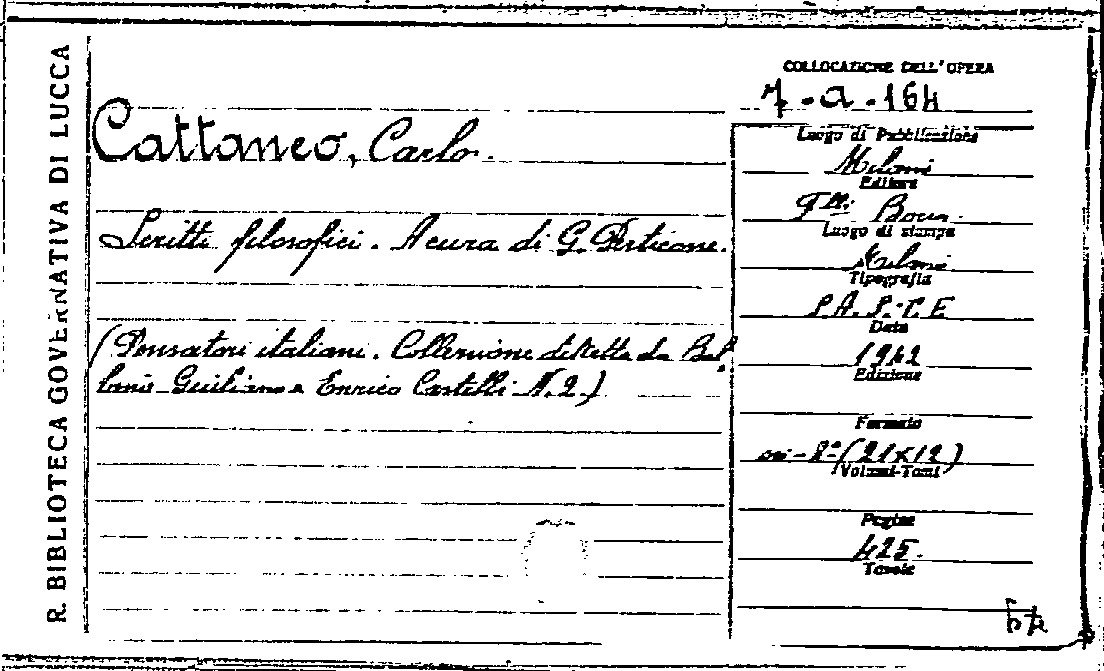 R. BIBLIOTECA GOVERNATIVA DI LUCCA
Cattaneo, Carlo.
Scritti filosofici. A cura di G. Perticone.
(Pensatori italiani. Collezione diretta da Bal,
Giuliano e Enrico Castelli N. 2)
COLLOCAZIONE DELL'OPERA
7-a-164
Luogo di Pubblicazione
Milano
Editore
F.lli Bocca
Luogo di stampa
Milano
Tipografia
Data
1942
Edizione
Formato
in-8° (21x12)
Volumi-Tomi
Pagine
425.
Tavole